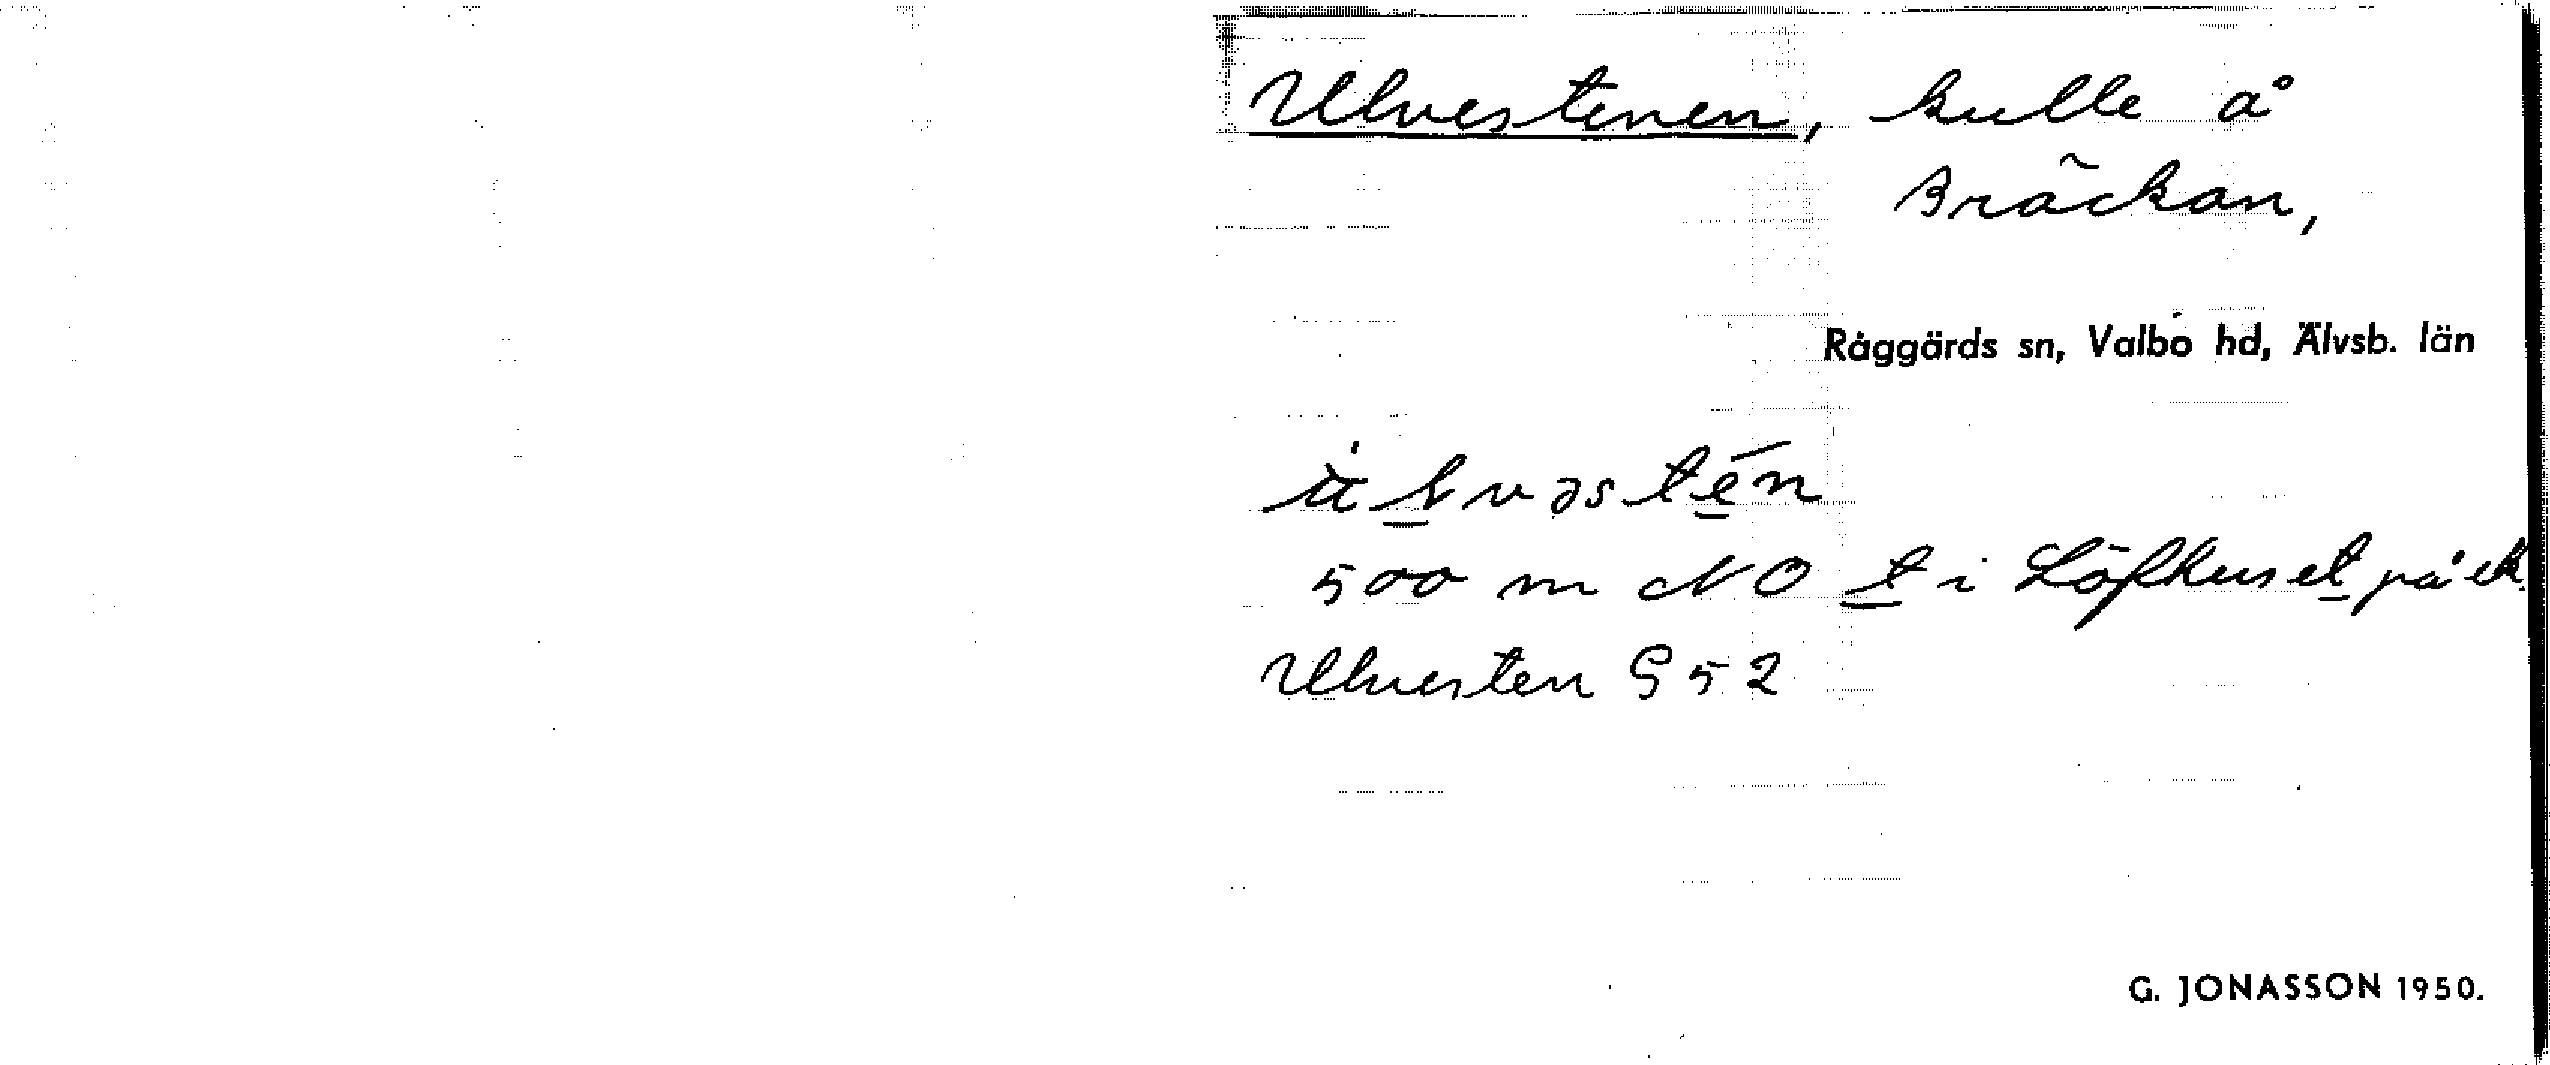 Ulvestenen, kulle å
Bräckan,
Råggärds sn, Valbo hd, Älvsb. län
500 m NO t i Löfhuset på ek.
Ulvesten S 52
G. JONASSON 1950.